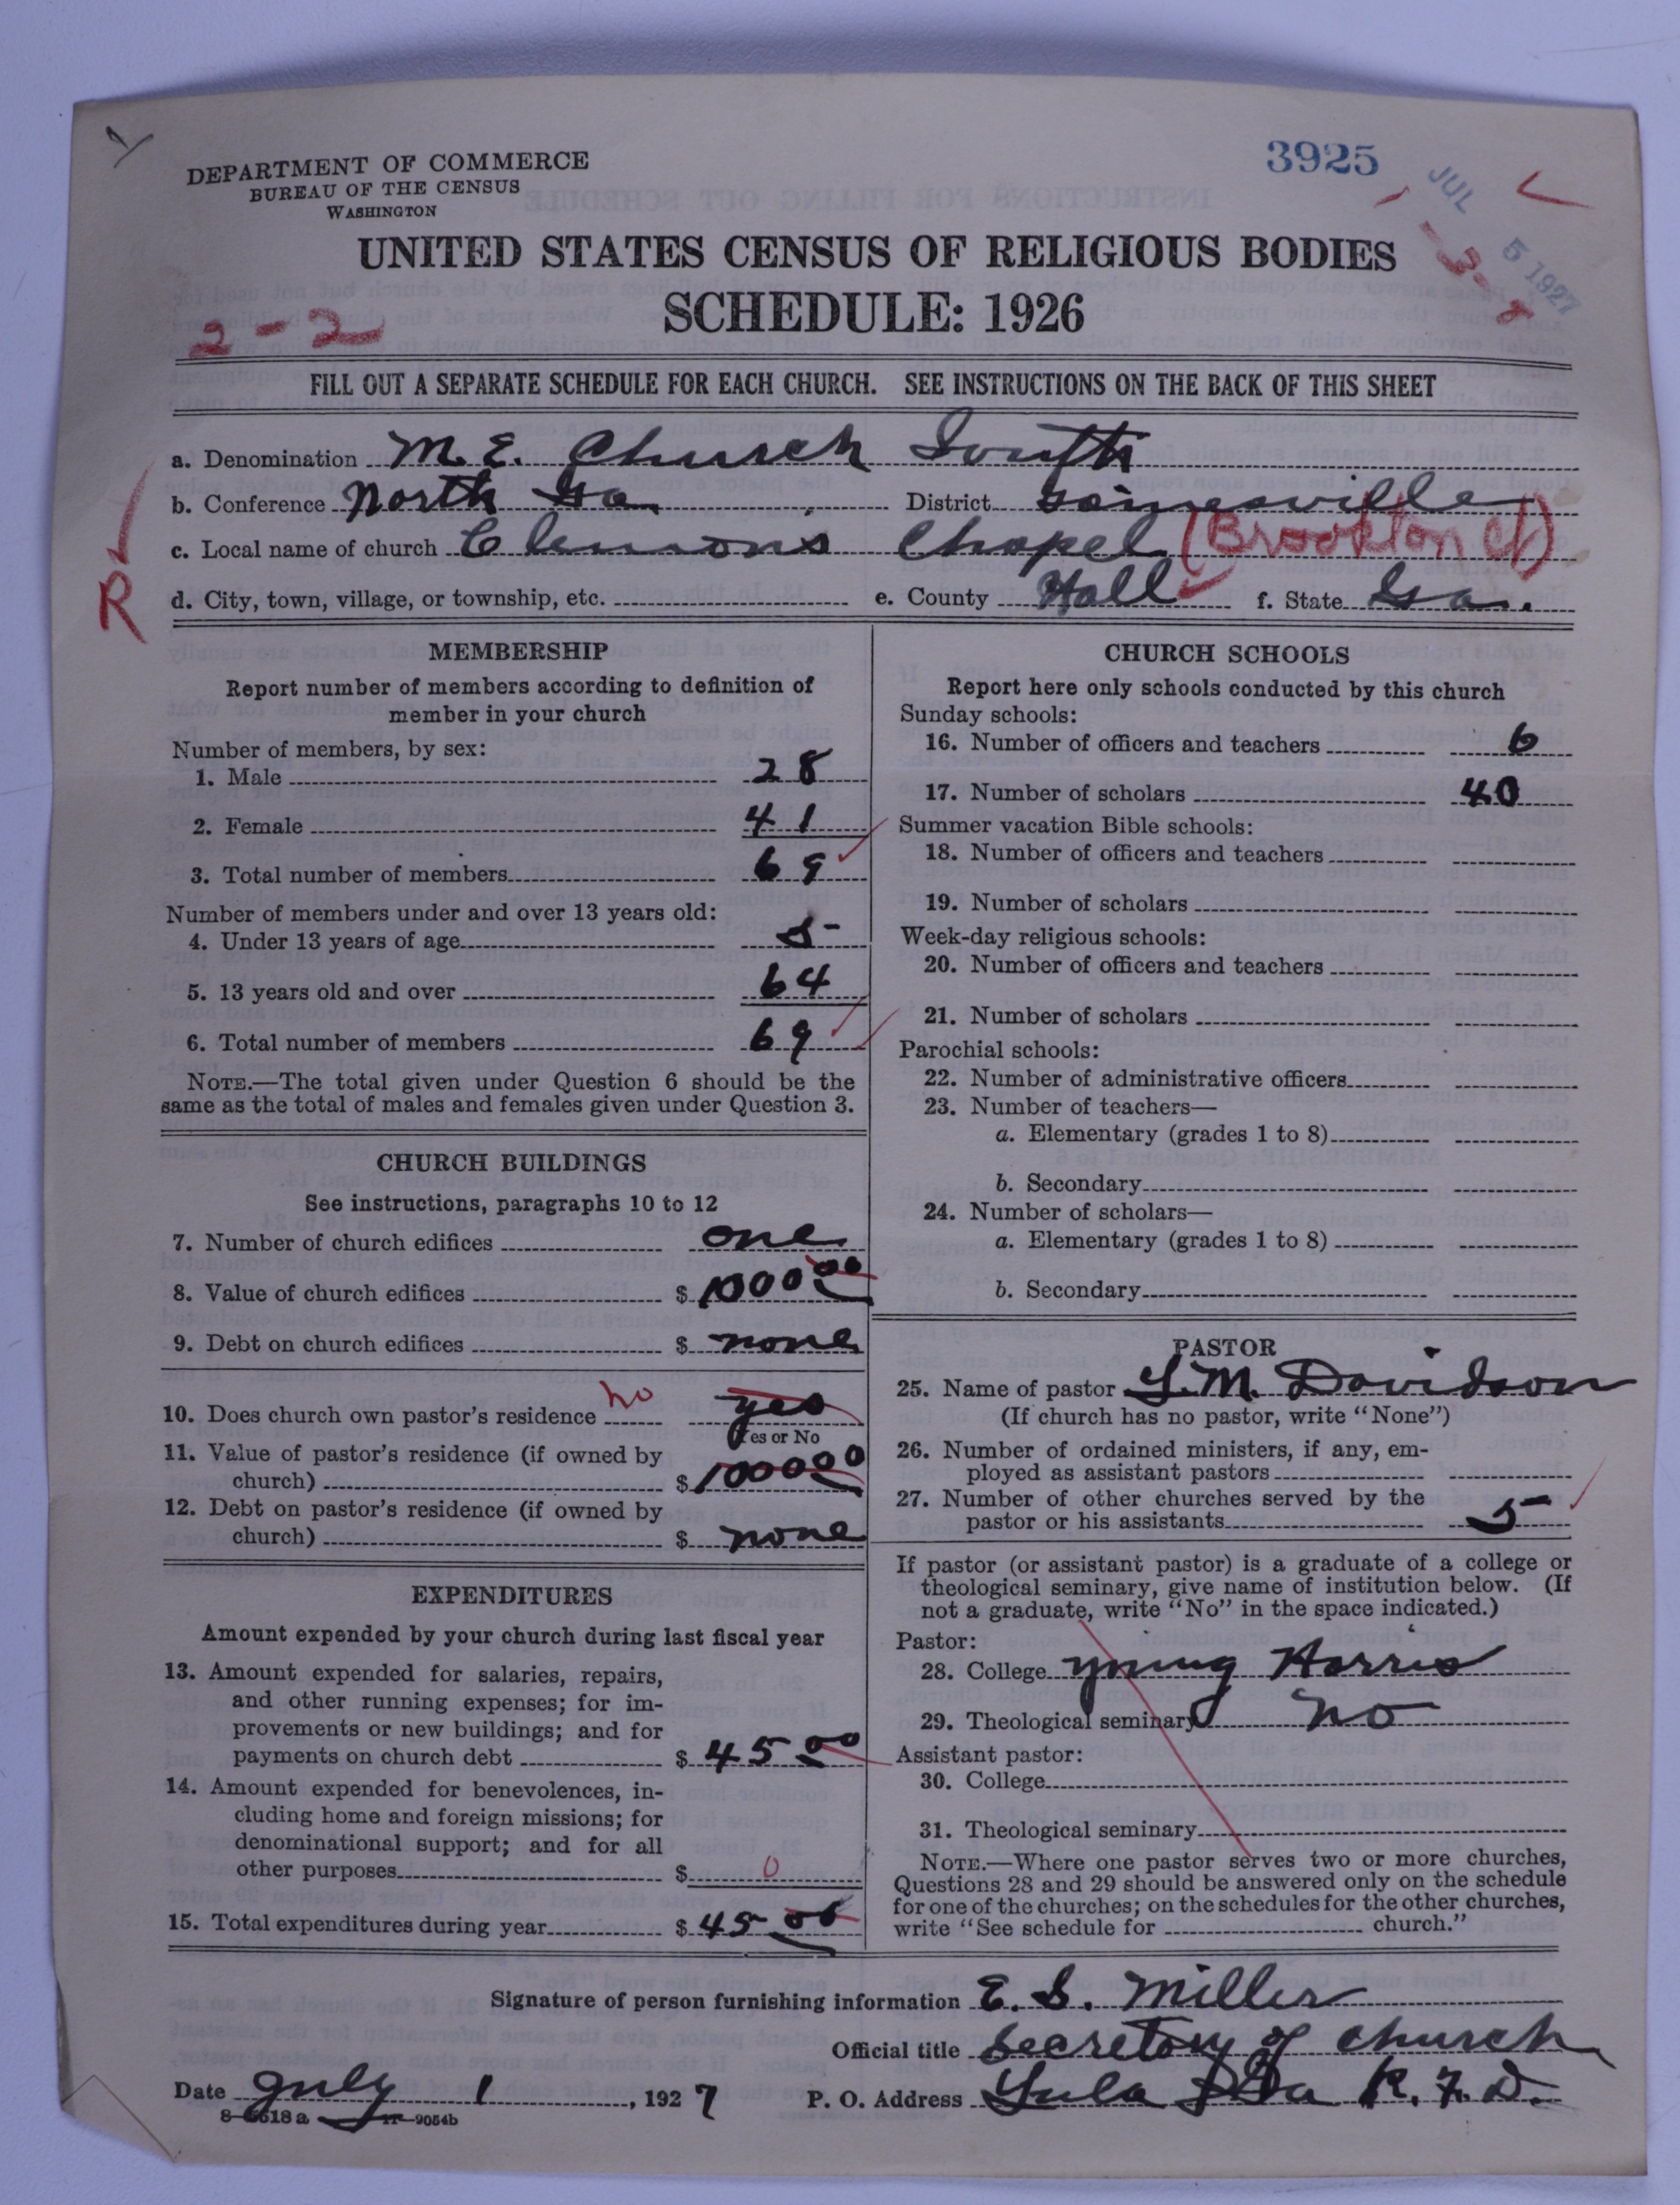 DEPARTMENT OF COMMERCE
BUREAU OF THE CENSUS
WASHINGTON
3925
JUL 5 1927
- 3 - 8
UNITED STATES CENSUS OF RELIGIOUS BODIES
SCHEDULE: 1926
2 - 2
FILL OUT A SEPARATE SCHEDULE FOR EACH CHURCH. SEE INSTRUCTIONS ON THE BACK OF THIS SHEET
a. Denomination M. E. Church South
b. Conference North Ga District Gainesville
c. Local name of church Clemons Chapel (Brookton Ct)
d. City, town, village, or township, etc. e. County Hall f. State Ga.
R
MEMBERSHIP
Report number of members according to definition of
member in your church
Number of members, by sex:
1. Male 28
2. Female 41
3. Total number of members 69
Number of members under and over 13 years old:
4. Under 13 years of age 5
5. 13 years old and over 64
6. Total number of members 69
NOTE.—The total given under Question 6 should be the
same as the total of males and females given under Question 3.
CHURCH BUILDINGS
See instructions, paragraphs 10 to 12
7. Number of church edifices one
8. Value of church edifices $ 1000 00
9. Debt on church edifices $ none
10. Does church own pastor's residence no yes
Yes or No
11. Value of pastor's residence (if owned by
church) $ 1000 00
12. Debt on pastor's residence (if owned by
church) $ none
EXPENDITURES
Amount expended by your church during last fiscal year
13. Amount expended for salaries, repairs,
and other running expenses; for im-
provements or new buildings; and for
payments on church debt $ 45 00
14. Amount expended for benevolences, in-
cluding home and foreign missions; for
denominational support; and for all
other purposes $ 0
15. Total expenditures during year $ 45 00
CHURCH SCHOOLS
Report here only schools conducted by this church
Sunday schools:
16. Number of officers and teachers 6
17. Number of scholars 40
Summer vacation Bible schools:
18. Number of officers and teachers
19. Number of scholars
Week-day religious schools:
20. Number of officers and teachers
21. Number of scholars
Parochial schools:
22. Number of administrative officers
23. Number of teachers—
a. Elementary (grades 1 to 8)
b. Secondary
24. Number of scholars—
a. Elementary (grades 1 to 8)
b. Secondary
PASTOR
25. Name of pastor L. M. Davidson
(If church has no pastor, write "None")
26. Number of ordained ministers, if any, em-
ployed as assistant pastors
27. Number of other churches served by the
pastor or his assistants 5
If pastor (or assistant pastor) is a graduate of a college or
theological seminary, give name of institution below. (If
not a graduate, write "No" in the space indicated.)
Pastor:
28. College Young Harris
29. Theological seminary No
Assistant pastor:
30. College
31. Theological seminary
NOTE.—Where one pastor serves two or more churches,
Questions 28 and 29 should be answered only on the schedule
for one of the churches; on the schedules for the other churches,
write "See schedule for church."
Signature of person furnishing information E. S. Miller
Official title Secretory of church
Date July 1, 1927 P. O. Address Lula Ga R. F. D.
8—6618 a 11—9054b